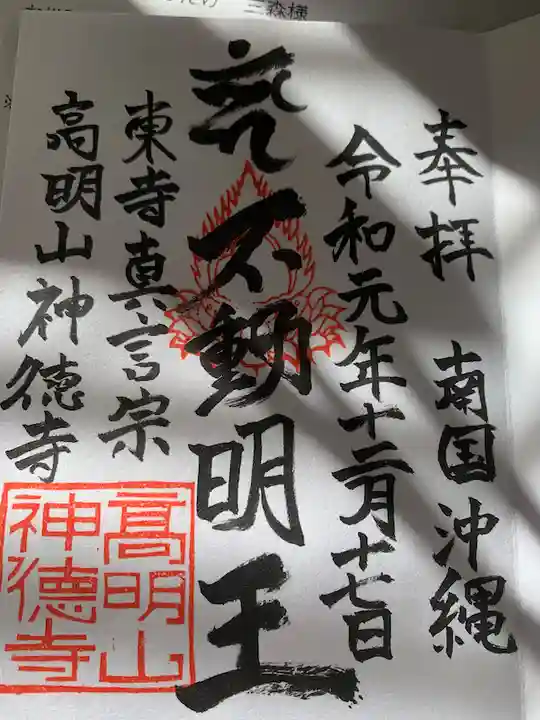 三森様
奉拝 南国沖縄
令和元年十二月十七日
不動明王
東寺真言宗
高明山神徳寺
高明山
神徳寺